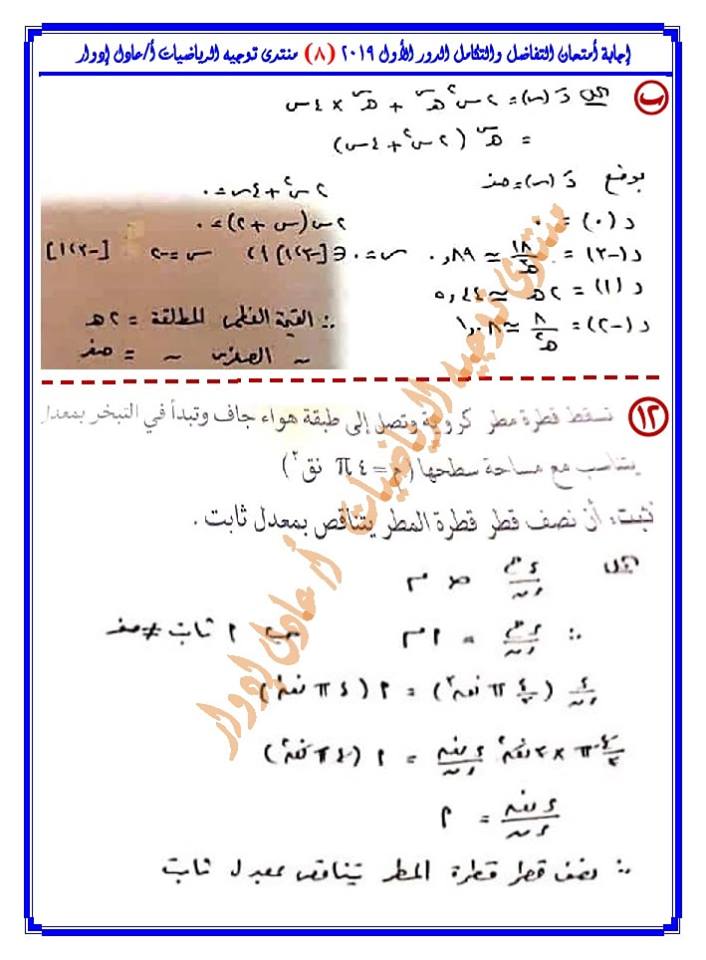 إجابة أمتحان التفاضل والتكامل الدور الأول ٢٠١٩ (٨) منتدى توجيه الرياضيات أ/عادل إدوار
ب
الحل دَ(س) = ٢س٢ هـس + هـس × ٤س
= هـس (٢س٢ + ٤س)
بوضع دَ(س) = صفر
٢س٢ + ٤س = ٠
د(٠) = ٠
٢س(س + ٢) = ٠
د(-٣) = ١٨/هـ٣ ≃ ٠,٨٩
س = ٠ ∈ [-٣، ١] أ، س = -٢ [-٣، ١]
د(١) = ٢هـ ≃ ٥,٤٤
د(-٢) = ٨/هـ٢ ≃ ١,٠٨
∴ القيمة العظمى المطلقة = ٢هـ
~ الصغرى ~ = صفر
١٢
تسقط قطرة مطر كروية وتصل إلى طبقة هواء جاف وتبدأ في التبخر بمعدل
يتناسب مع مساحة سطحها (م = ٤ π نق٢)
ثبت، أن نصف قطر قطرة المطر يتناقص بمعدل ثابت.
الحل
ءح/ءن ∝ م
∴ ءح/ءن = أ م حيث أ ثابت ≠ صفر
ء/ءن (٤/٣ π نق٣) = أ (٤ π نق٢)
٤/٣ π × ٣ نق٢ ءنق/ءن = أ (٤ π نق٢)
ءنق/ءن = أ
∴ نصف قطر قطرة المطر يتناقص بمعدل ثابت
منتدى توجيه الرياضيات أ/عادل إدوار